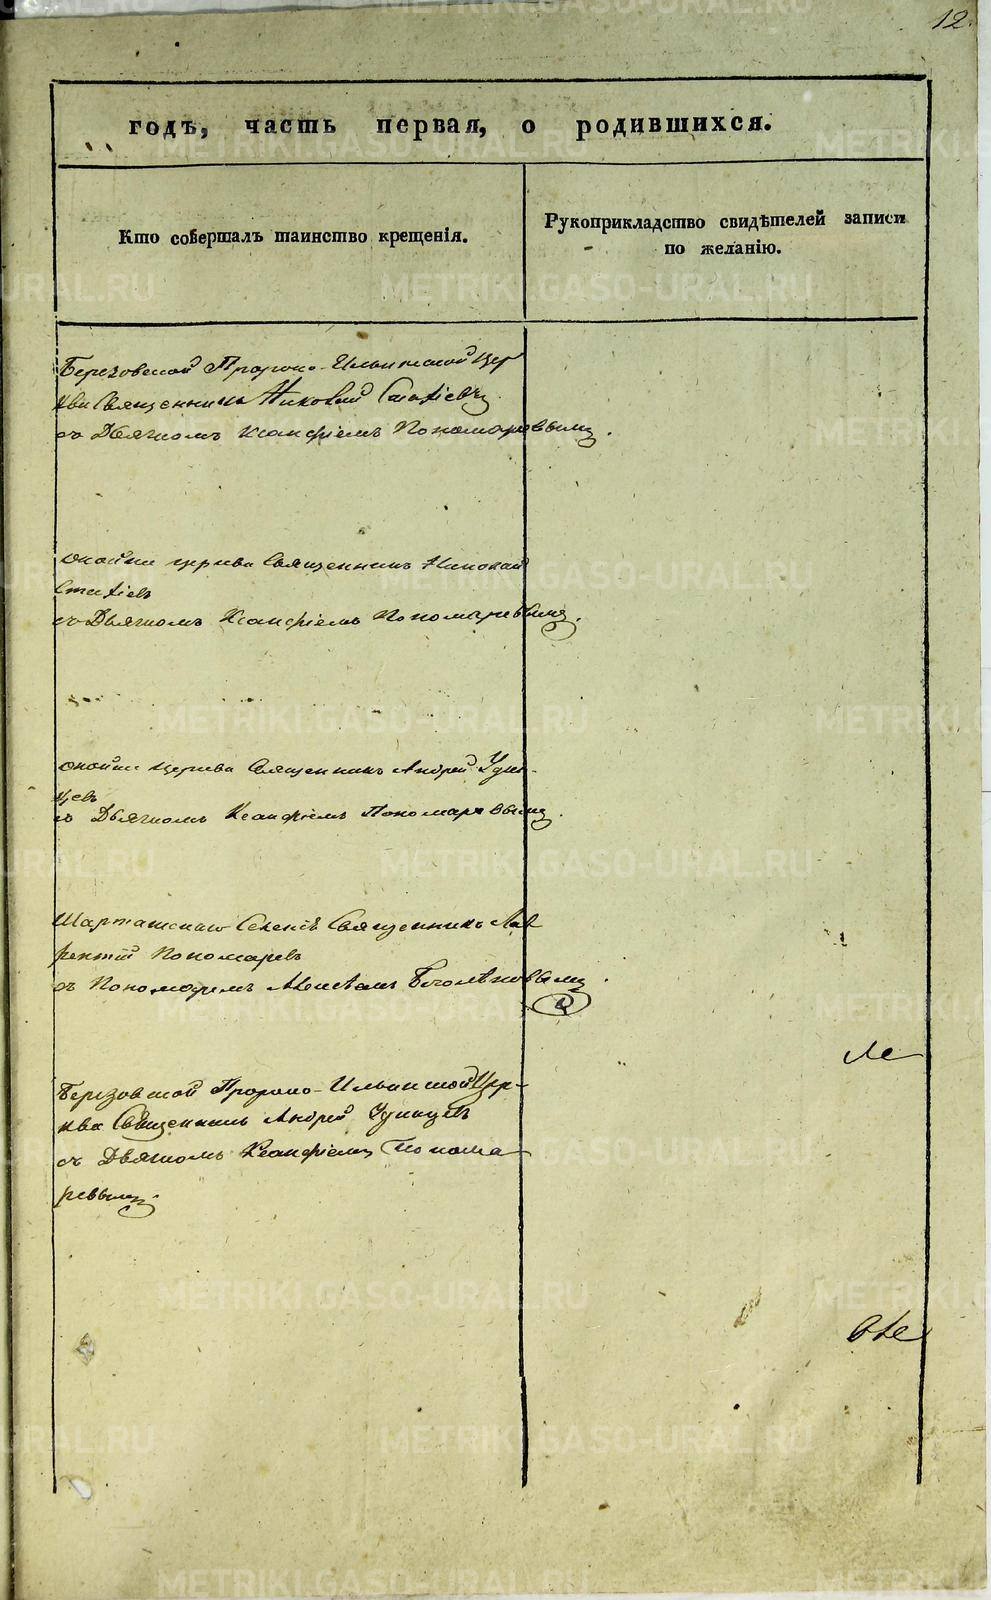 12.
годъ, часть первая, о родившихся.
Кто совершалъ таинство крещенія.
Рукоприкладство свидѣтелей записи
по желанію.
Березовской Пророко-Ильинской Цер
кви Священникъ Николай Стаѳіевъ
съ Дьячкомъ Ксанфіемъ Пономаревымъ.
Оной же церкви Священникъ Николай
Стаѳіевъ
съ Дьячкомъ Ксанфіемъ Пономаревымъ.
Оной же церкви Священникъ Андрей Удин-
цевъ
съ Дьячкомъ Ксанфіемъ Пономаревымъ.
Шарташскаго Селенія Священникъ Лав
рентій Пономаревъ
съ Пономаремъ
Березовской Пророко-Ильинской Цер-
кви Священникъ Андрей Удинцевъ
съ Дьячкомъ Ксанфіемъ Понома
ревымъ.
METRIKI.GASO-URAL.RU